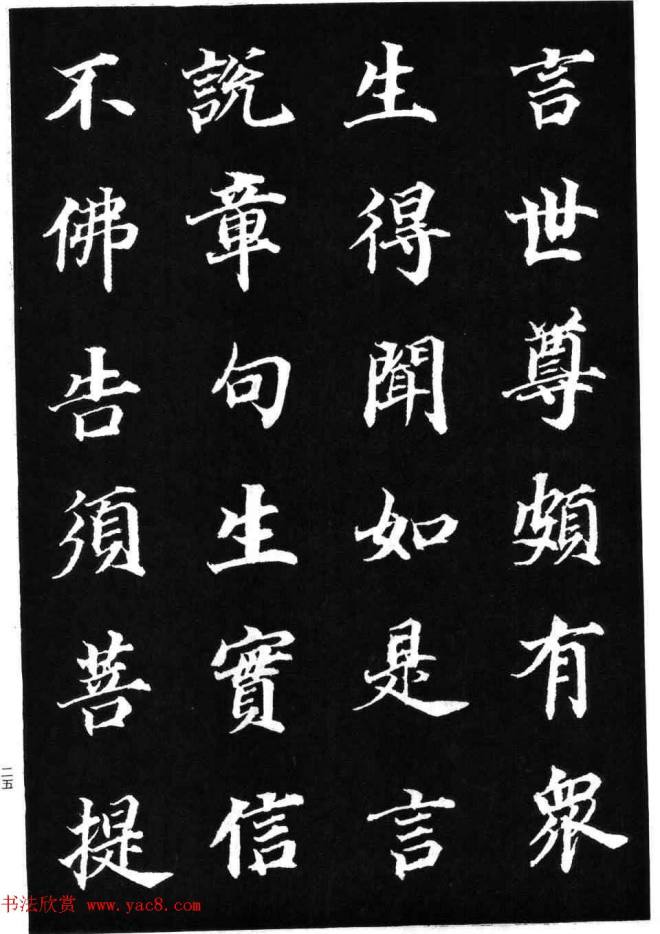 言世尊頗有眾
生得聞如是言
說章句生實信
不佛告須菩提
二五
书法欣赏 www.yac8.com